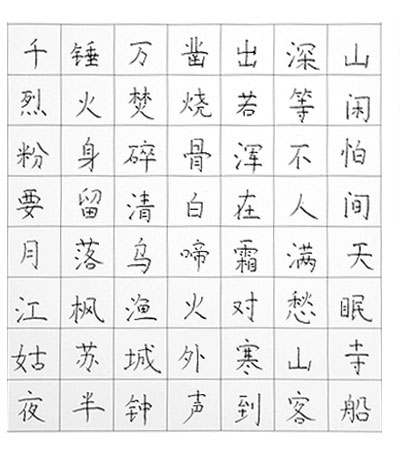 千锤万凿出深山
烈火焚烧若等闲
粉身碎骨浑不怕
要留清白在人间
月落乌啼霜满天
江枫渔火对愁眠
姑苏城外寒山寺
夜半钟声到客船